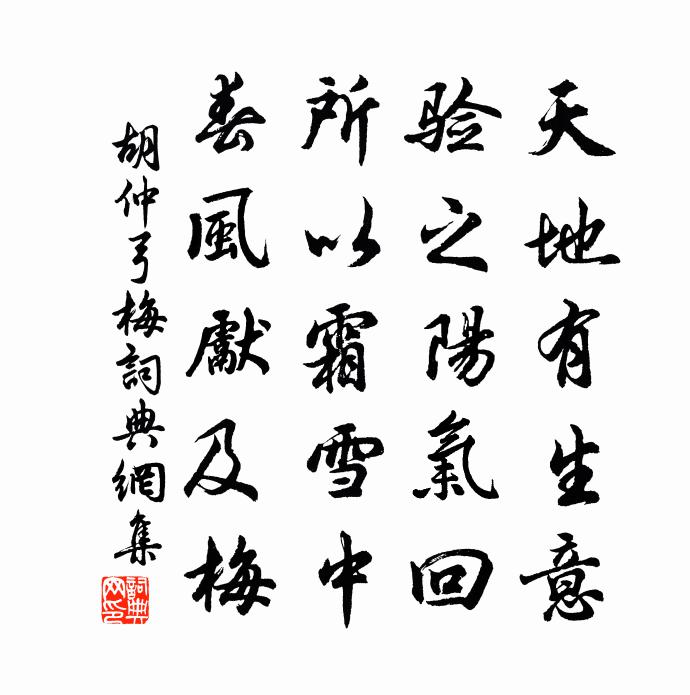 天地有生意
验之陽氣回
所以霜雪中
春風獻及梅
胡仲弓梅詞典網集
詞典网印